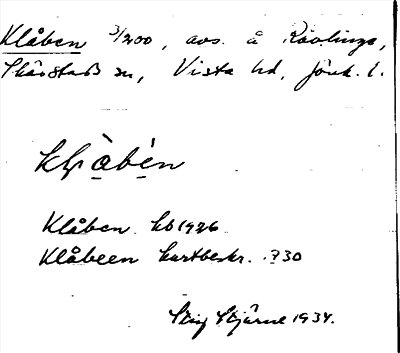 Klåben 3/200, avs. å Rävlinge,
Skärstad sn, Vista hd, Jönk. l.
klåbén
Klåben hb 1926
Klåbeen kartbeskr. 1730
Stig Stjärne 1934.